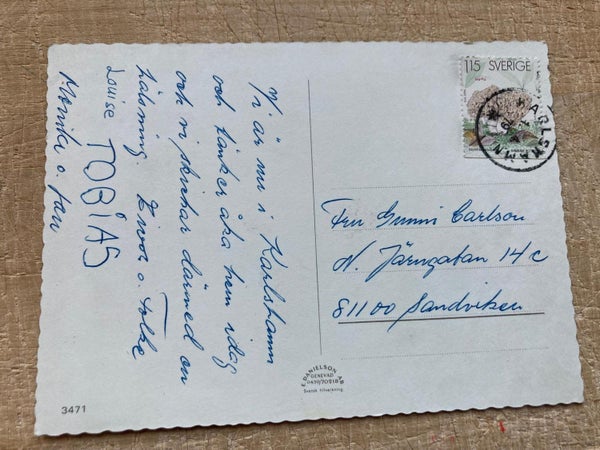 Vi är nu i Karlshamn
och tänker åka hem idag
och vi skickar därmed en
hälsning Eivor o. Folke
Louise TOBIAS
Monika o. Jan
115 SVERIGE
KARLSHAMN
Fru Gunni Carlson
N. Järngatan 14 c
81100 Sandviken
E. DANIELSON AB
GENEVAD
0430/70218
Svensk tillverkning
3471